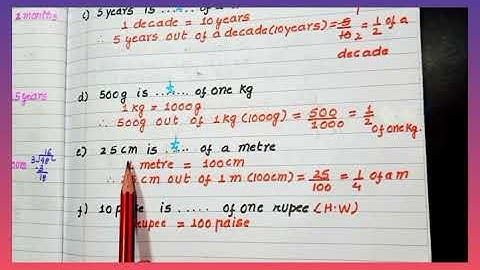 2 months
c) 5 years is ...... of a
1 decade = 10 years
∴ 5 years out of a decade (10 years) = 5/10 2 = 1/2 of a
decade
5 years
d) 500g is ...... of one kg
1 kg = 1000g
∴ 500g out of 1 kg (1000g) = 500/1000 = 1/2
of one kg.
e) 25 cm is ..... of a metre
metre = 100cm
cm out of 1 m (100cm) = 25/100 = 1/4 of a m
f) 10 paise is ..... of one rupee (H.W)
rupee = 100 paise